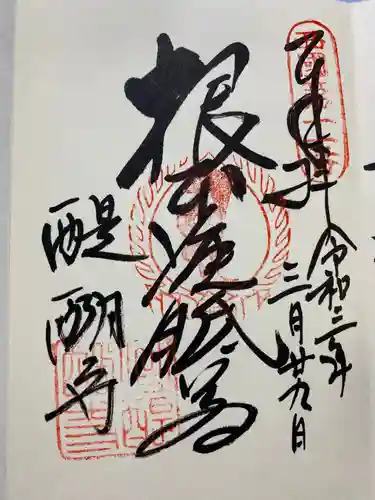 奉拝
令和三年
三月廿九日
根本准胝尊
醍醐寺